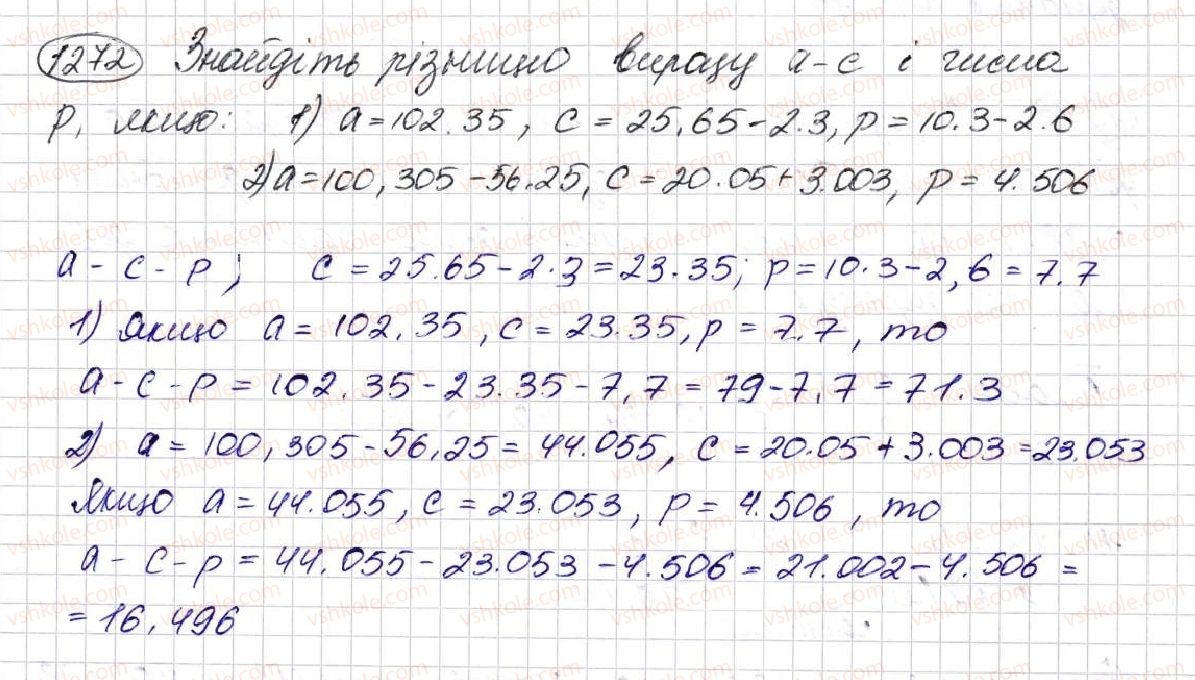 1272 Знайдіть різницю виразу a-c і числа
p, якщо: 1) a=102.35, c=25,65-2.3, p=10.3-2.6
2) a=100,305-56.25, c=20.05+3.003, p=4.506
a-c-p; c=25.65-2.3=23.35; p=10.3-2,6=7.7
1) якщо a=102,35, c=23.35, p=7.7, то
a-c-p=102.35-23.35-7,7=79-7,7=71.3
2) a=100,305-56,25=44.055, c=20.05+3.003=23.053
Якщо a=44.055, c=23.053, p=4.506, то
a-c-p=44.055-23.053-4.506=21.002-4.506=
=16,496